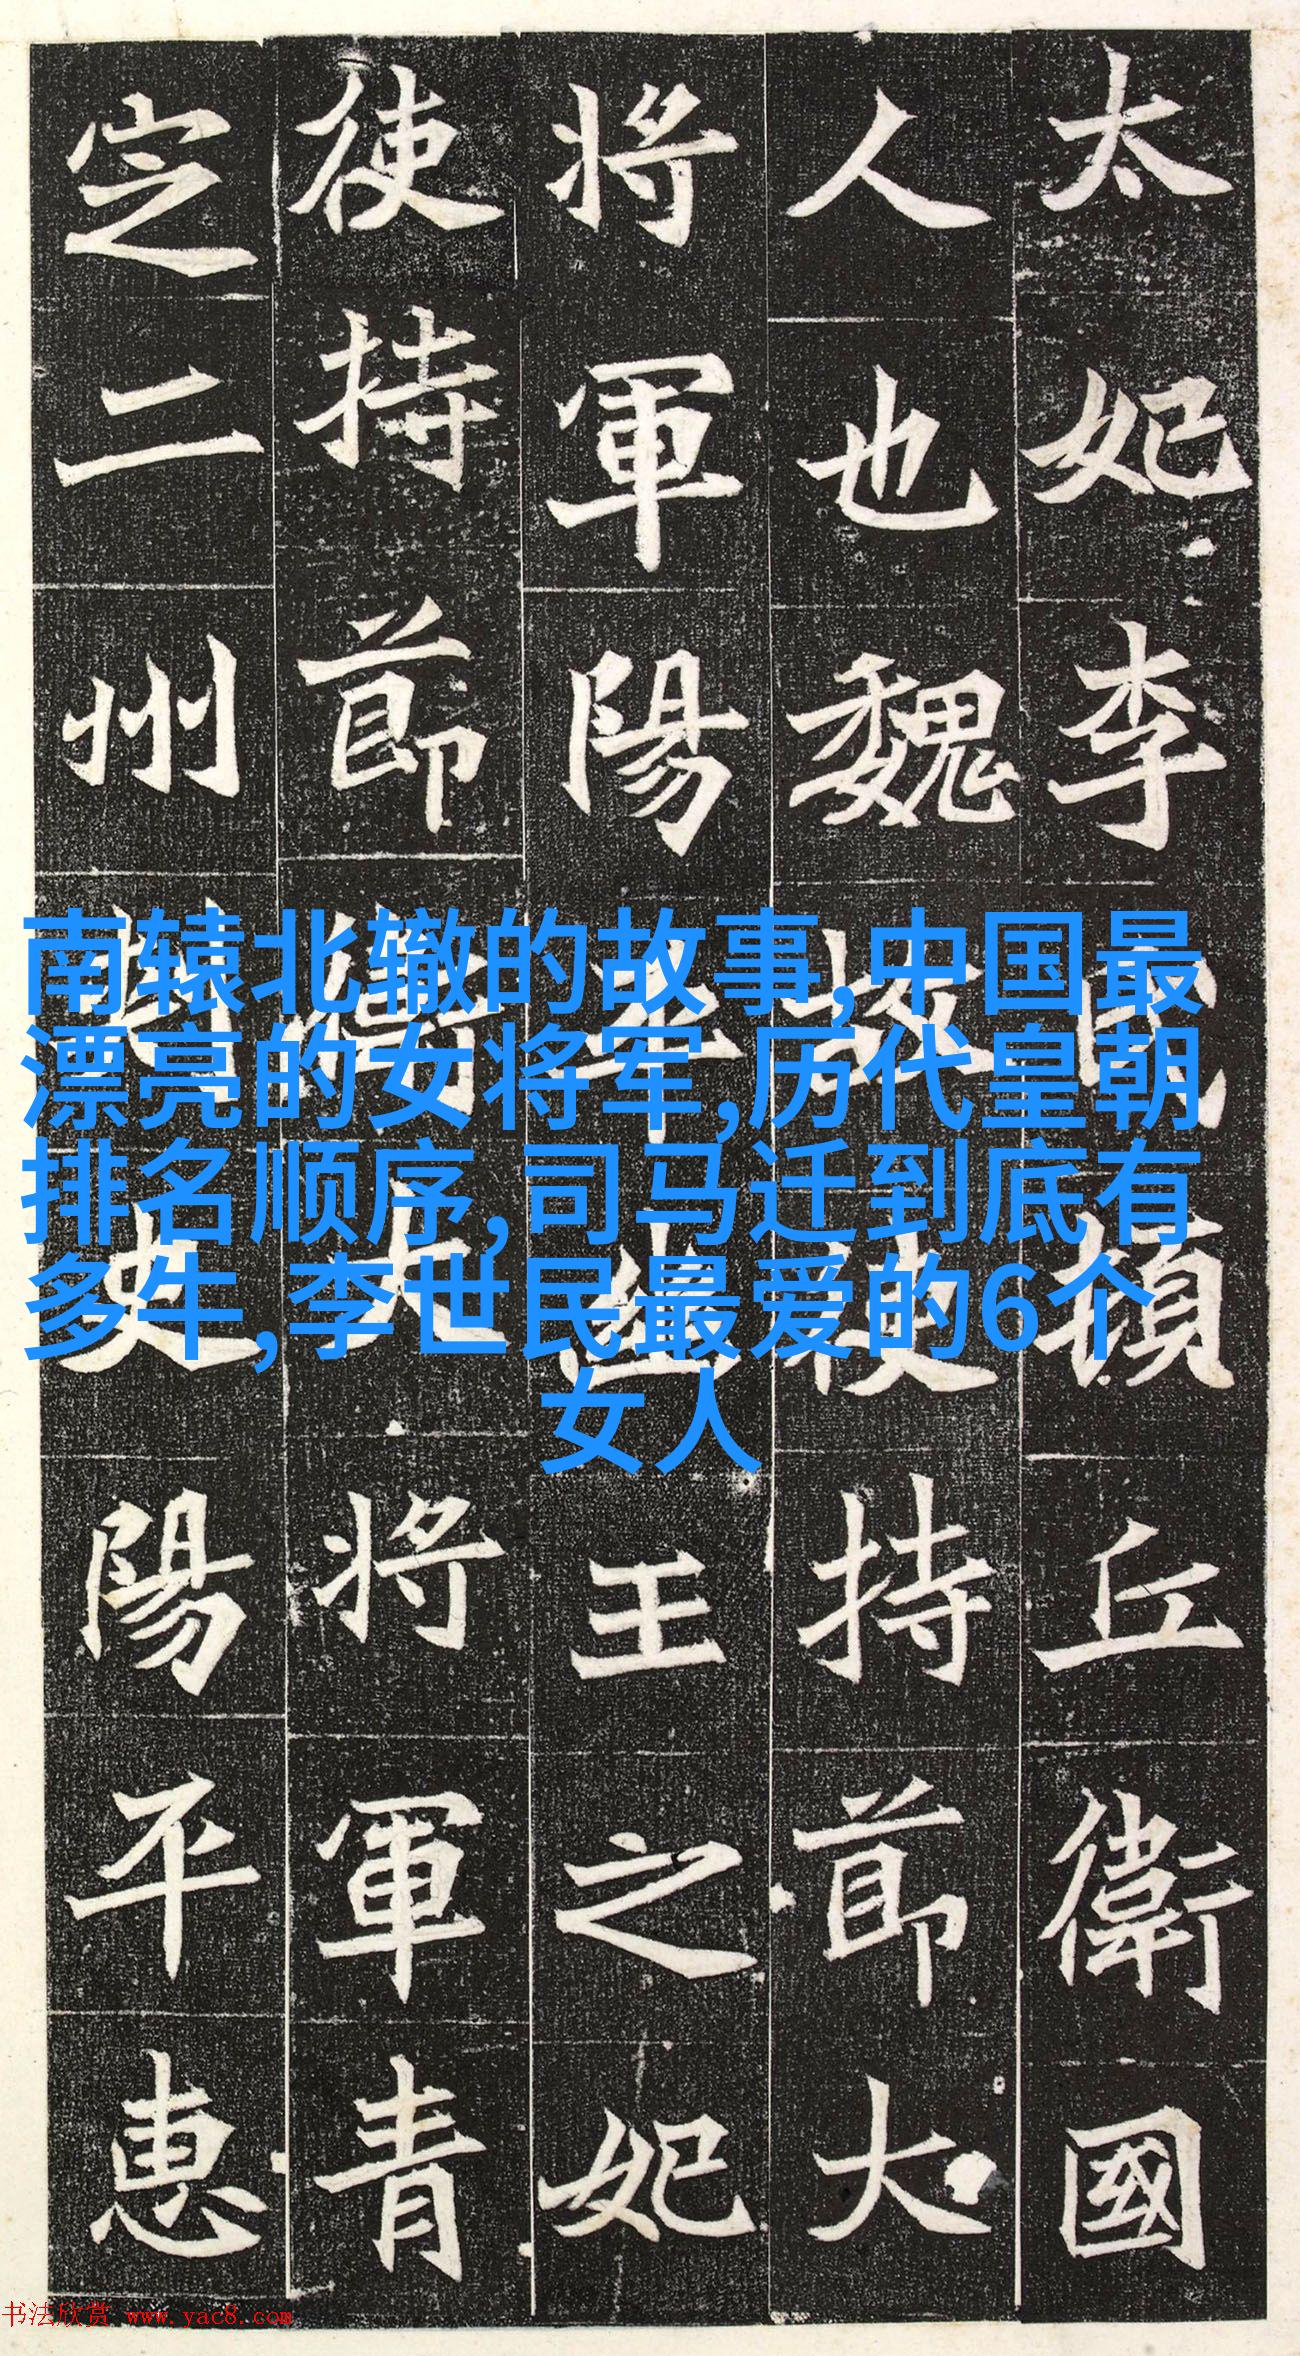 太妃李氏頓丘衛國
人也魏故使持節大
將軍陽平幽王之妃
使持節衛大將軍青
定二州刺史陽平惠
南辕北辙的故事,中国最
漂亮的女将军,历代皇朝
排名顺序,司马迁到底有
多牛,李世民最爱的6个
女人
书法欣赏 www.yac8.com